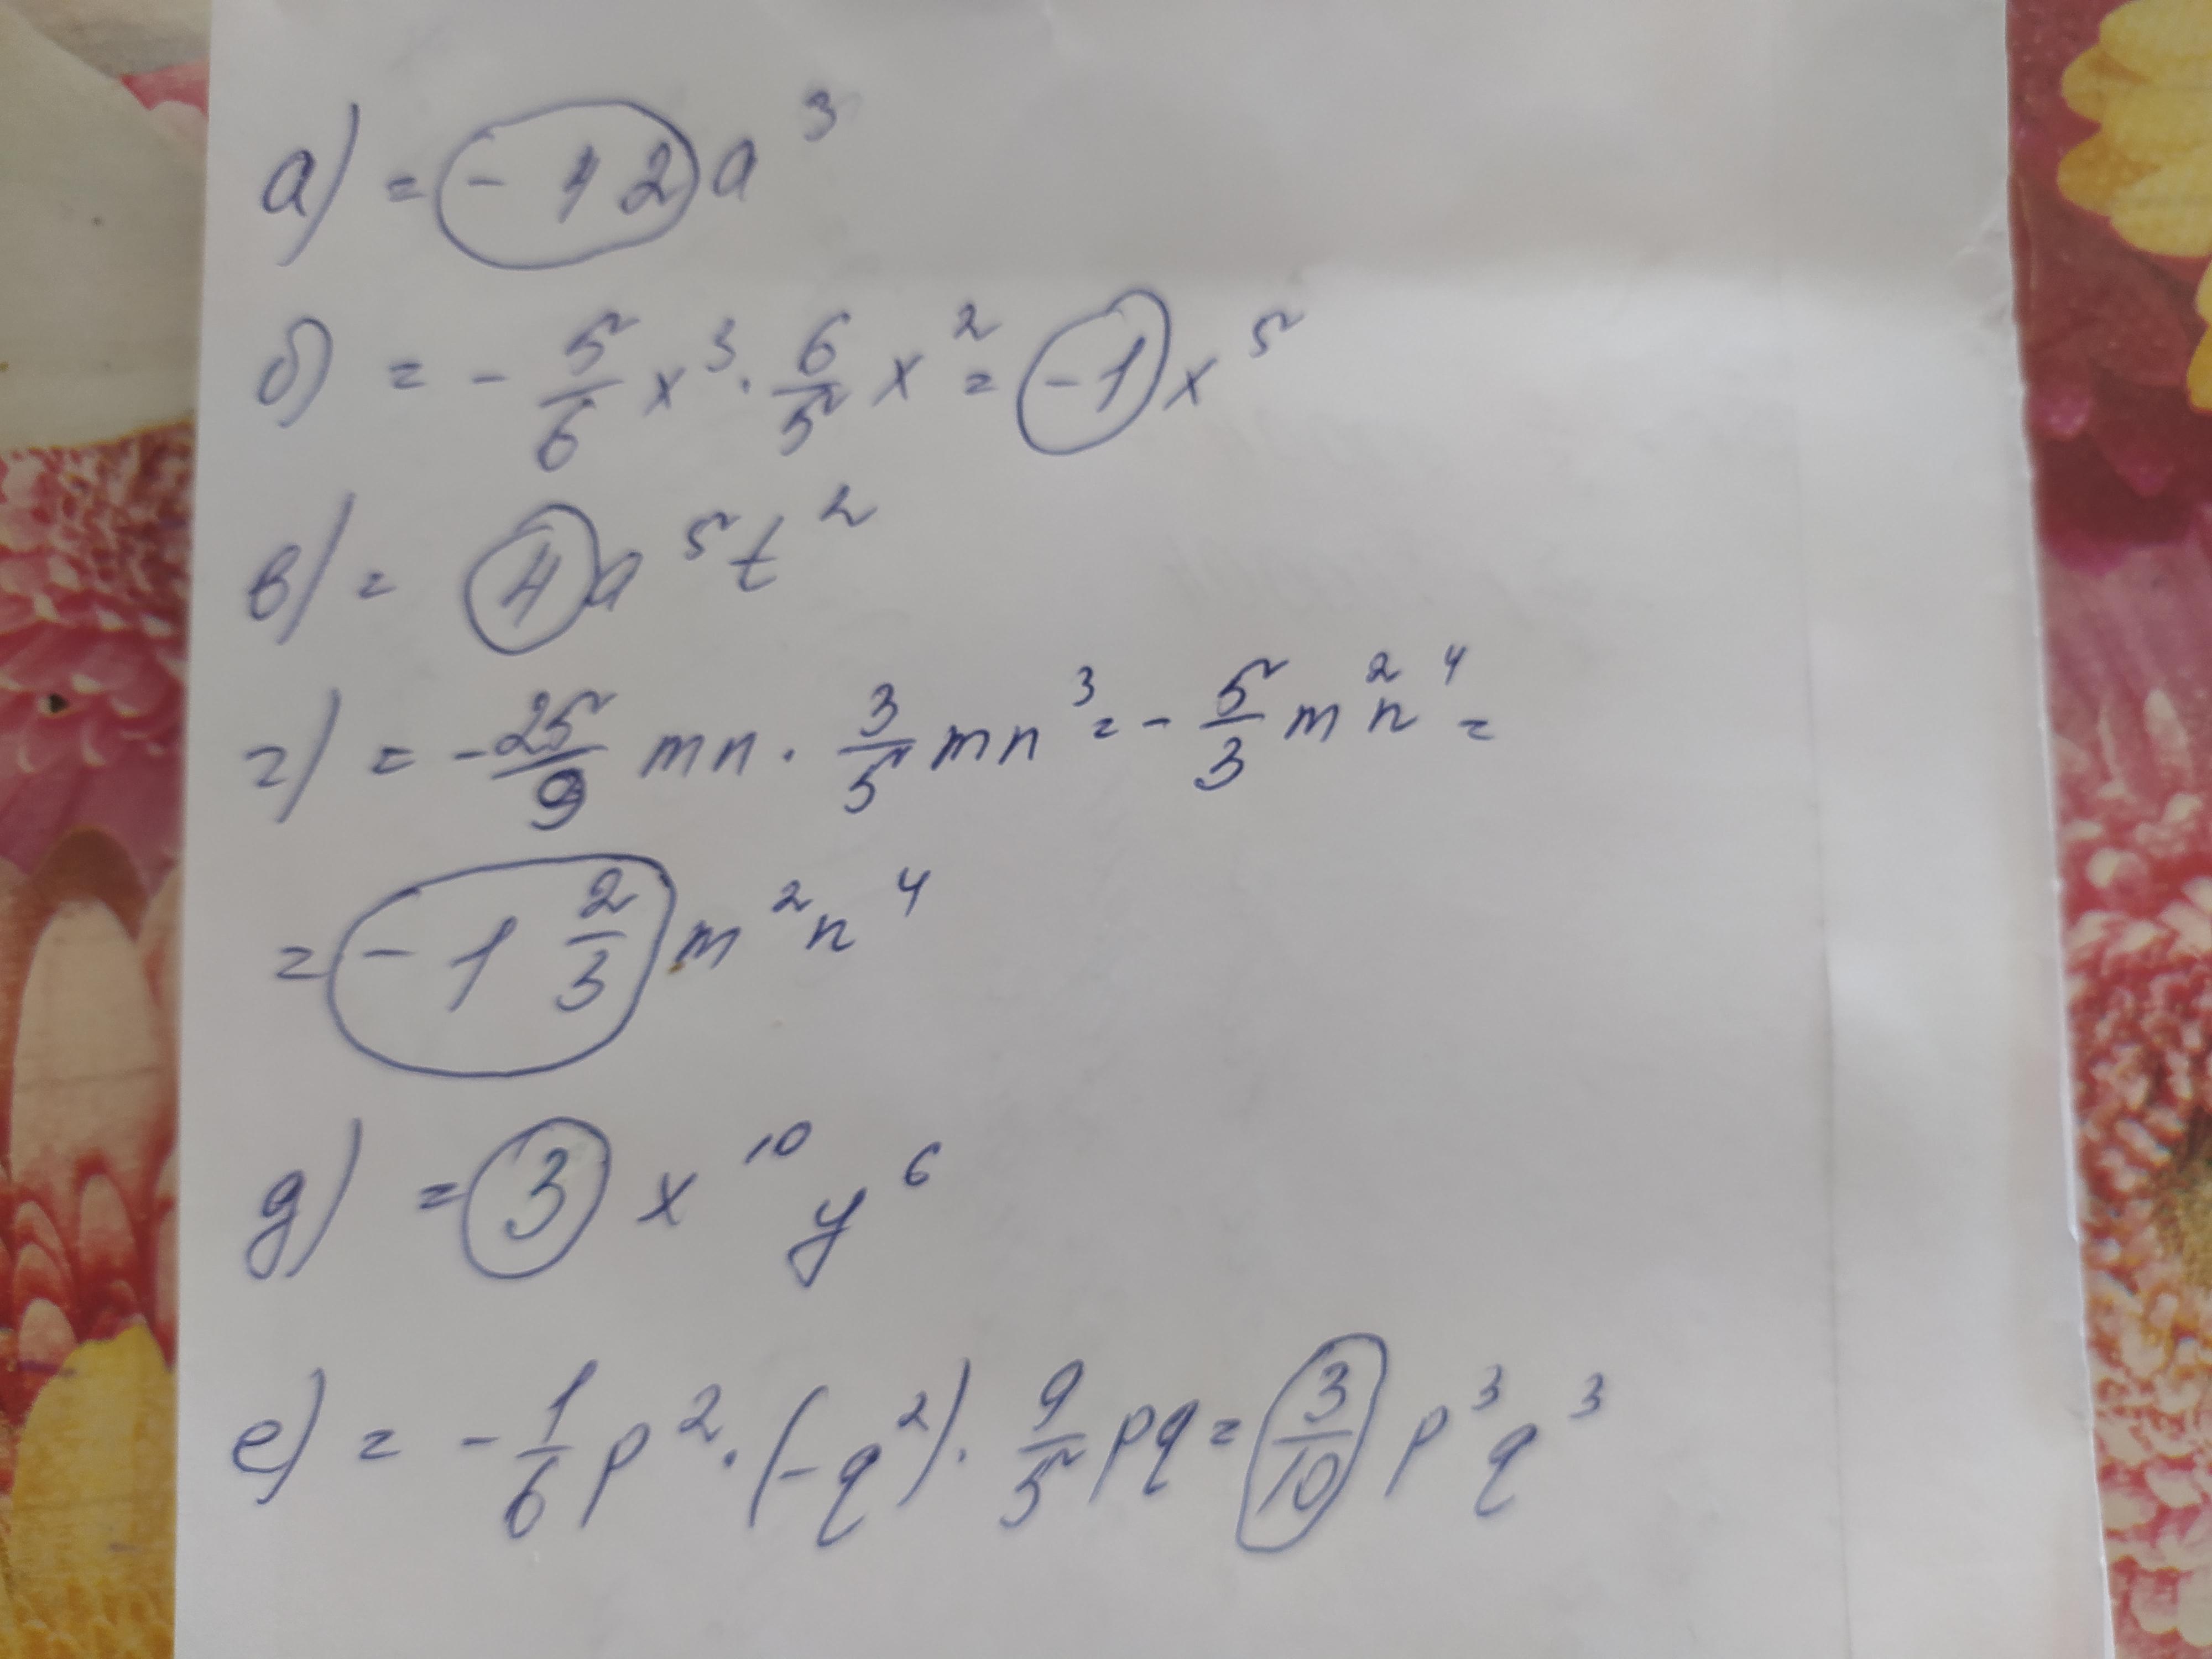 а) = -12a³
б) = -5/6 x³ · 6/5 x² = -1x⁵
в) = 4a⁵t²
г) = -25/9 mn · 3/5 mn³ = -5/3 m²n⁴ =
= -1 2/3 m²n⁴
д) = 3x¹⁰y⁶
е) = -1/6 p² · (-q²) · 9/5 pq = 3/10 p³q³